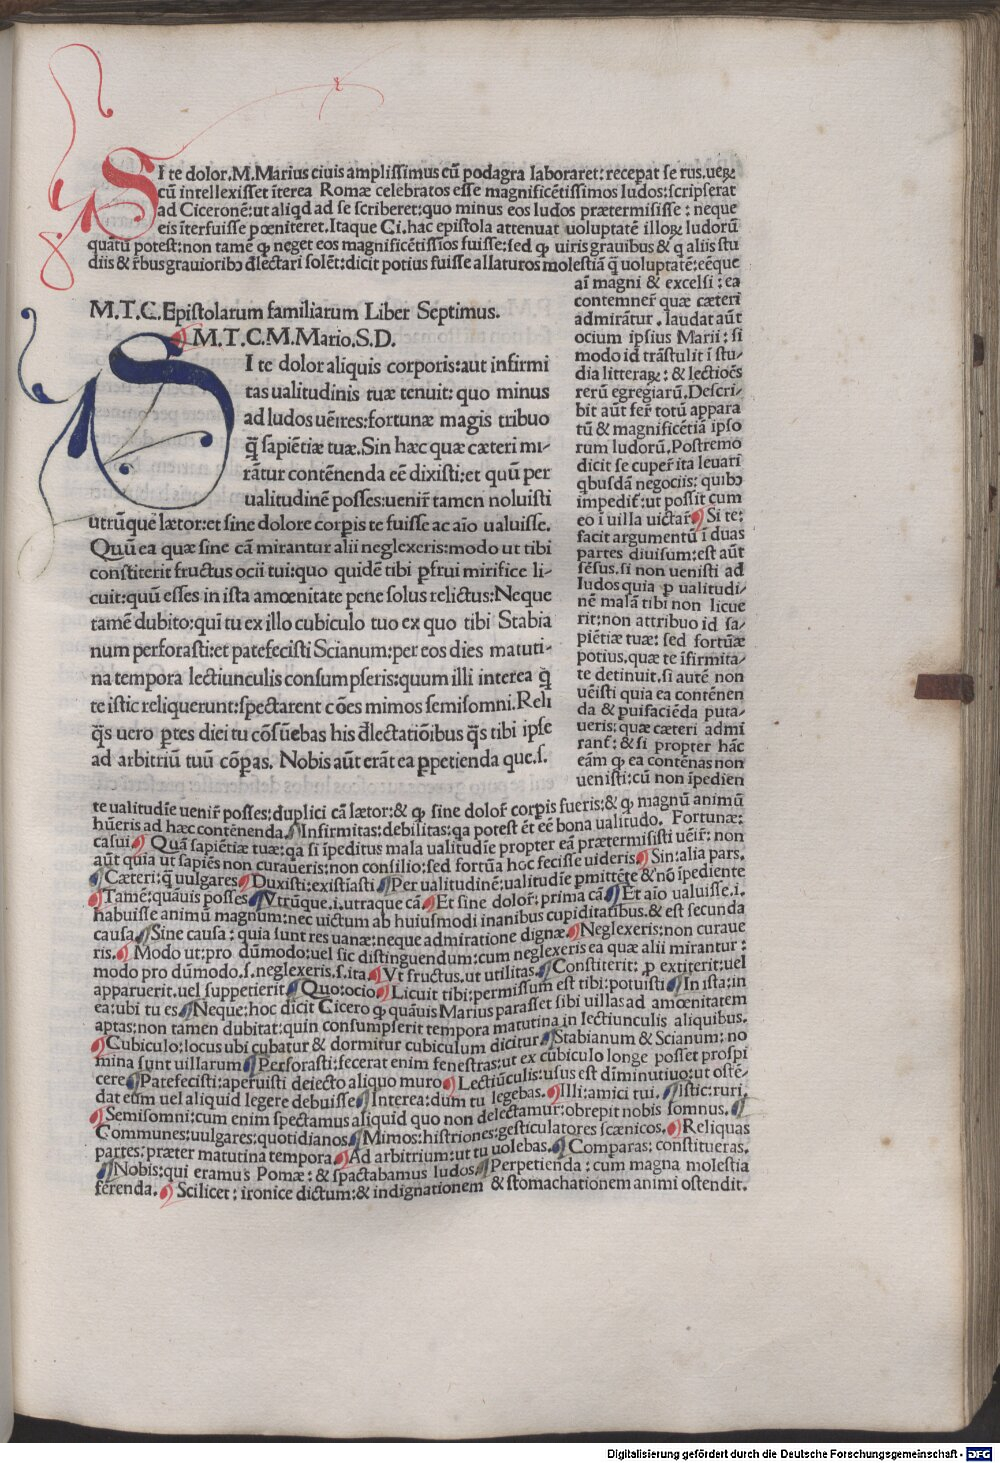 SI te dolor.M.Marius ciuis amplissimus cū podagra laboraret: recepat se rus.ueꝝ
cū intellexisset īterea Romæ celebratos esse magnificētissimos ludos: scripserat
ad Ciceronē: ut aliqd ad se scriberet: quo minus eos ludos prætermisisse: neque
eis īterfuisse pœniteret. Itaque Ci. hac epistola attenuat uoluptatē illoꝝ ludorū
quātū potest: non tamē ꝙ neget eos magnificētissīos fuisse: sed ꝙ uiris grauibus & q aliis stu
diis & r̄bus grauioribꝰ dlectari solēt: dicit potius fuisse allaturos molestiā q̄ uoluptatē: eēque
M.T.C.Epistolarum familiarum Liber Septimus.
M.T.C.M.Mario.S.D.
SI te dolor aliquis corporis: aut infirmi
tas ualitudinis tuæ tenuit: quo minus
ad ludos uēires: fortunæ magis tribuo
q̄ sapiētiæ tuæ. Sin hæc quæ cæteri mi-
rātur contēnenda eē dixisti: et quū per
ualitudinē posses: uenir̄ tamen noluisti
utrūque lætor: et sine dolore corpis te fuisse ac aīo ualuisse.
Quū ea quæ sine cā mirantur alii neglexeris: modo ut tibi
constiterit fructus ocii tui: quo quidē tibi pfrui mirifice li-
cuit: quū esses in ista amœnitate pene solus relictus: Neque
tamē dubito: quī tu ex illo cubiculo tuo ex quo tibi Stabia
num perforasti: et patefecisti Scianum: per eos dies matuti-
na tempora lectiunculis consumpseris: quum illi interea q̄
te istic reliquerunt: spectarent cōes mimos semisomni. Reli
q̄s uero ptes diei tu cōsūebas his dlectatiōibus q̄s tibi ipse
ad arbitriū tuū cōpas. Nobis aūt erāt ea ppetienda que.s.
aī magni & excelsi: ea
contemner̄ quæ cæteri
admirātur. laudat aūt
ocium ipsius Marii: si
modo id trāstulit ī stu-
dia litteraꝝ: & lectiōes
rerū egregiarū. Descri-
bit aūt fer̄ totū appara
tū & magnificētiā ipso
rum ludorū. Postremo
dicit se cuper̄ ita leuari
qbusdā negociis: quibꝰ
impedit̄: ut possit cum
eo ī uilla uictar̄ Si te:
facit argumentū ī duas
partes diuisum: est aūt
sēsus. si non uenisti ad
ludos quia p ualitudi-
nē malā tibi non licue
rit: non attribuo id sa-
piētiæ tuæ: sed fortūæ
potius. quæ te īfirmita-
te detinuit. si autē non
uēisti quia ea contēnen
da & puifaciēda puta-
ueris: quæ cæteri admī
rant̄: & si propter hāc
eām ꝙ ea contēnas non
uenisti: cū non īpedien
te ualitudīe uenir̄ posses: duplici cā lætor: & ꝙ sine dolor̄ corpis fueris: & ꝙ magnū animū
hūeris ad hæc contēnenda. Infirmitas: debilitas: qa potest ēt eē bona ualitudo. Fortunæ:
casui. Quā sapiētiæ tuæ: qa si īpeditus mala ualitudīe propter eā prætermisisti uēir̄: non
aūt quia ut sapiēs non curaueris: non consilio: sed fortūa hoc fecisse uideris. Sin: alia pars.
Cæteri: q̄ uulgares Duxisti: existīasti Per ualitudinē: ualitudīe pmittēte & nō īpediente
Tamē: quāuis posses Vtrūque.i. utraque cā. Et sine dolor̄: prima cā Et aīo ualuisse.i.
habuisse animū magnum: nec uictum ab huiusmodi inanibus cupiditatibus. & est secunda
causa Sine causa: quia sunt res uanæ: neque admiratione dignæ. Neglexeris: non curaue
ris. Modo ut: pro dūmodo: uel sic distinguendum: cum neglexeris ea quæ alii mirantur:
modo pro dūmodo.s.neglexeris.s.ita. Vt fructus.ut utilitas. Constiterit: p extiterit: uel
apparuerit. uel suppetierit Quo: ocio Licuit tibi: permissum est tibi: potuisti In ista: in
ea: ubi tu es Neque: hoc dicit Cicero ꝙ quāuis Marius parasset sibi uillas ad amœnitatem
aptas: non tamen dubitat: quin consumpserit tempora matutina in lectiunculis aliquibus.
Cubiculo: locus ubi cubatur & dormitur cubiculum dicitur Stabianum & Scianum: no
mina sunt uillarum Perforasti: fecerat enim fenestras: ut ex cubiculo longe posset prospi
cere Patefecisti: aperuisti deiecto aliquo muro Lectiūculis: usus est dīminutiuo: ut ostē-
dat eum uel aliquid legere debuisse Interea: dum tu legebas. Illi: amici tui. Istic: ruri.
Semisomni: cum enim spectamus aliquid quo non delectamur: obrepit nobis somnus.
Communes: uulgares: quotidianos Mimos: histriones: gesticulatores scænicos. Reliquas
partes: præter matutina tempora. Ad arbitrium: ut tu uolebas. Comparas: constitueras.
Nobis: qui eramus Pomæ: & spactabamus ludos Perpetienda: cum magna molestia
ferenda. Scilicet: ironice dictum: & indignationem & stomachationem animi ostendit.
Digitalisierung gefördert durch die Deutsche Forschungsgemeinschaft - DFG